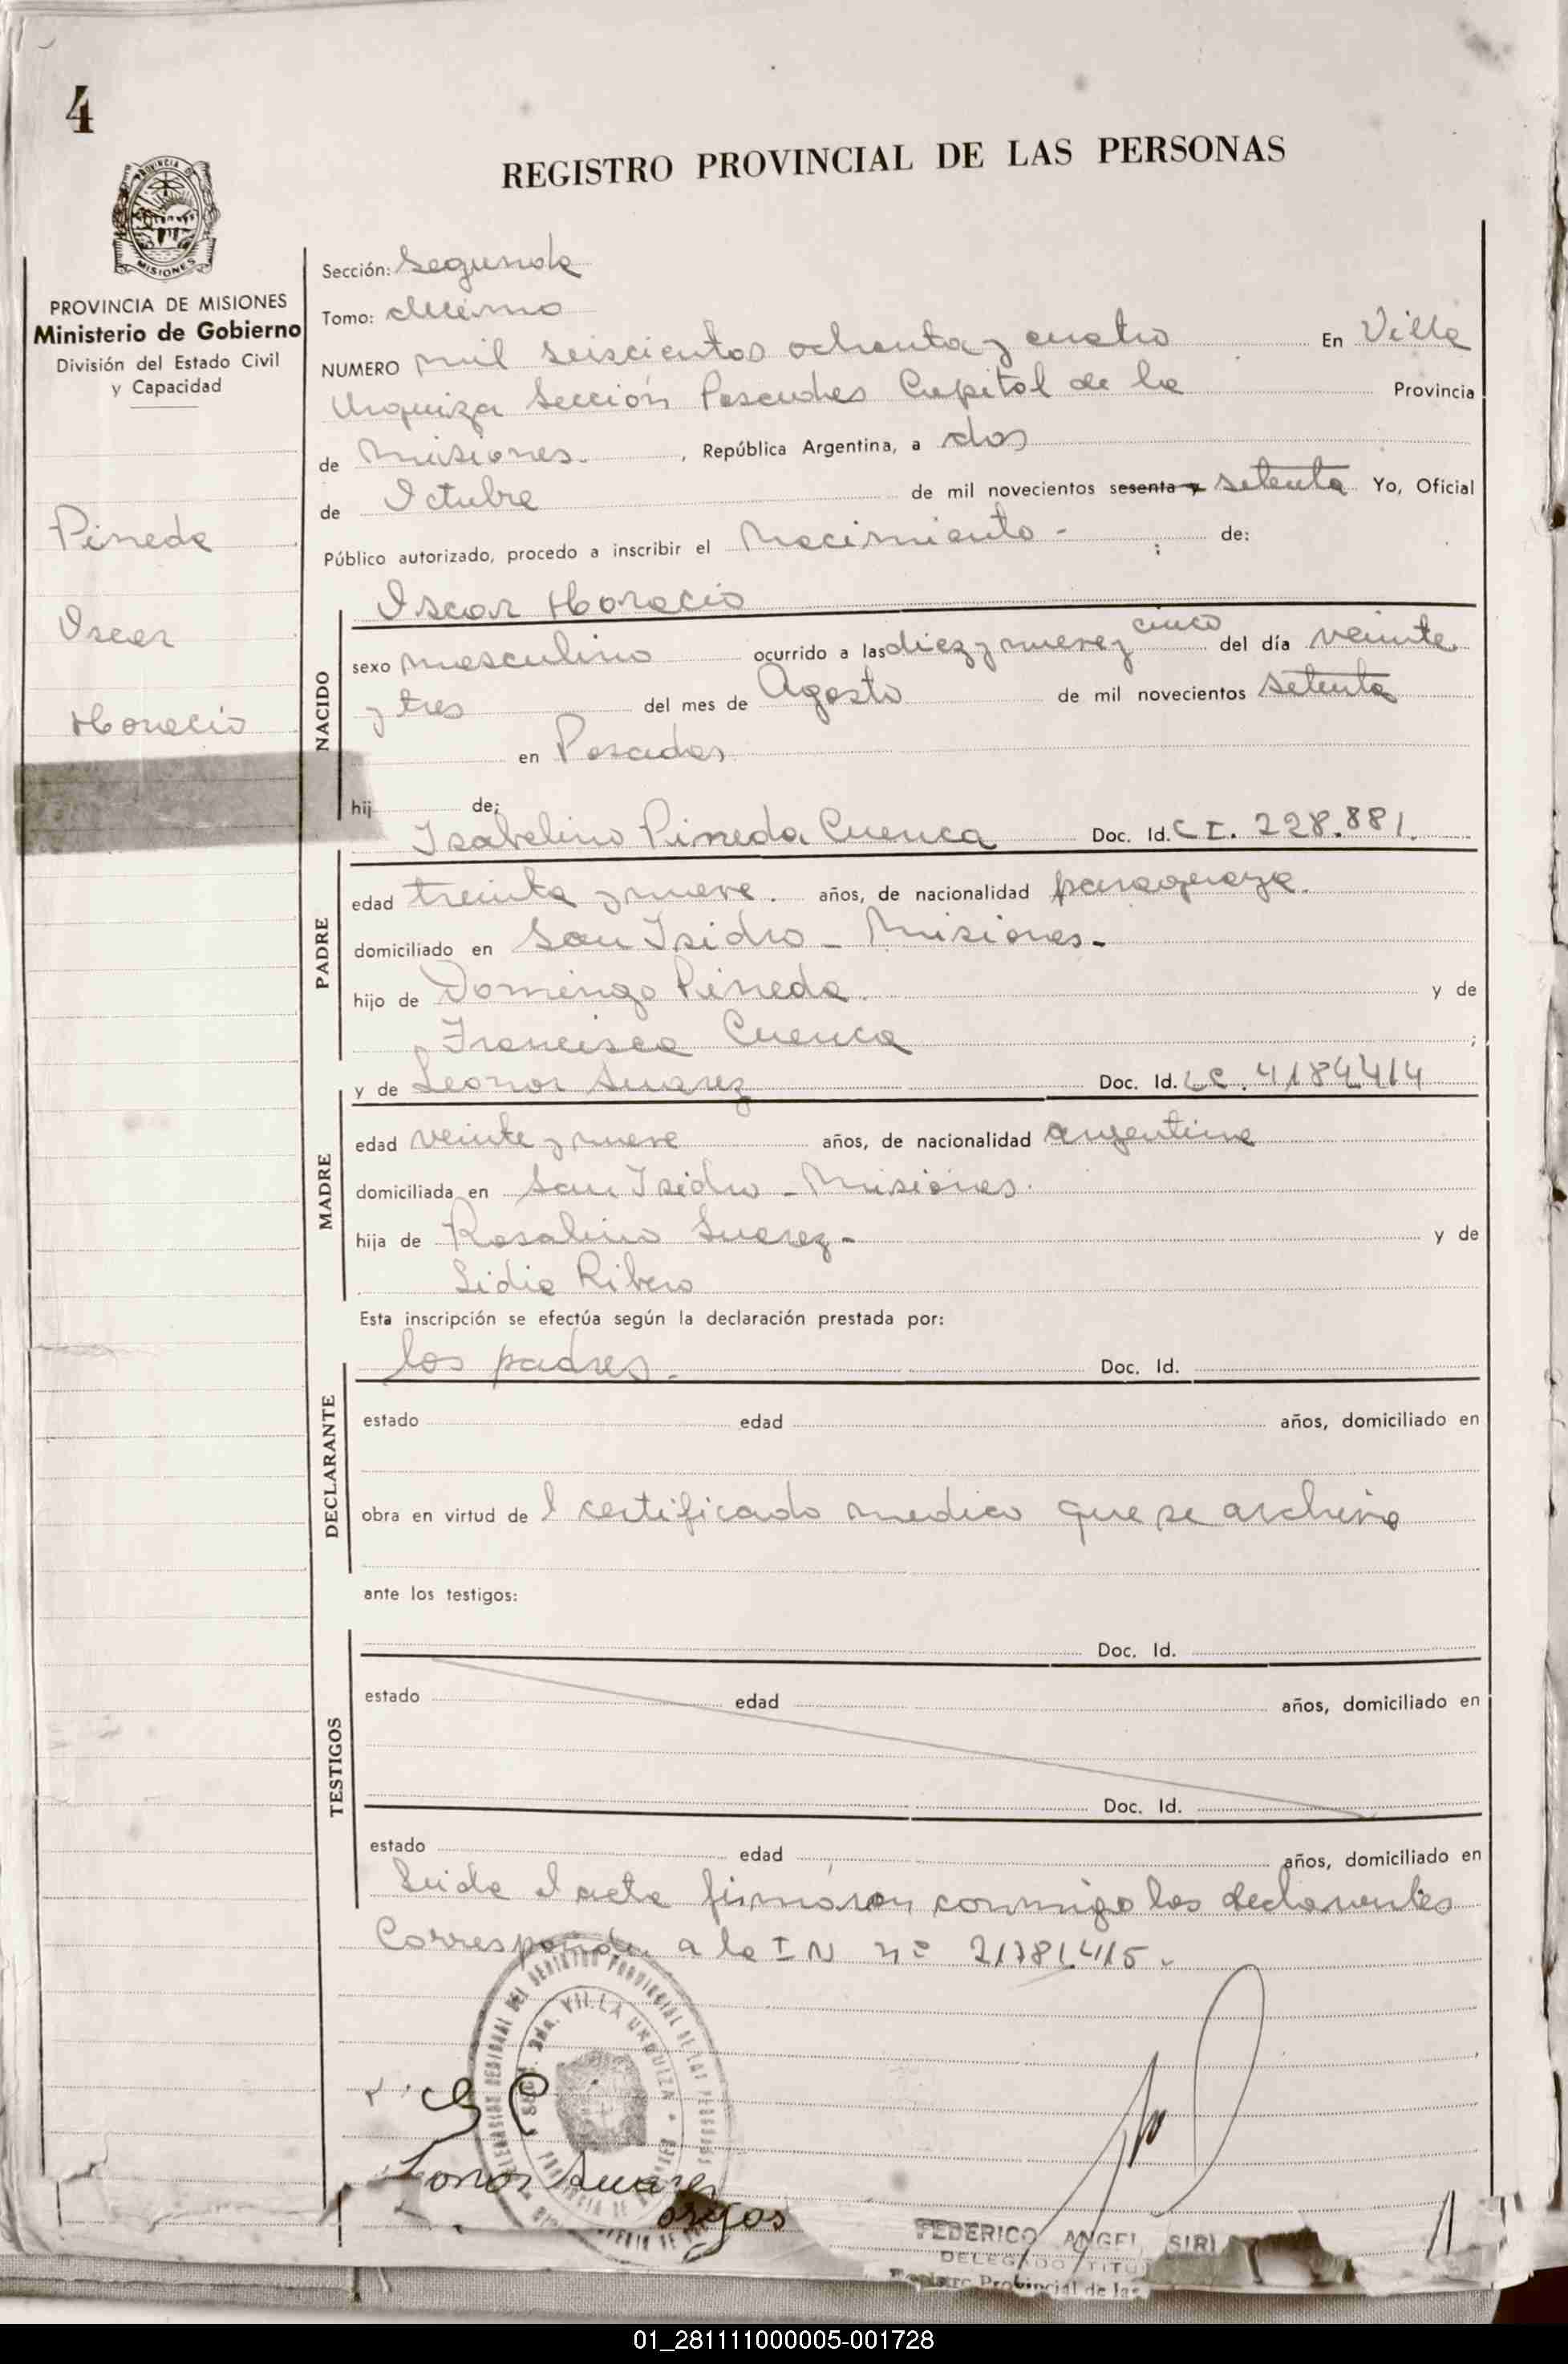 4
REGISTRO PROVINCIAL DE LAS PERSONAS
PROVINCIA
MISIONES
PROVINCIA DE MISIONES
Ministerio de Gobierno
División del Estado Civil
y Capacidad
Pineda
Oscar
Horacio
Sección: Segunda
Tomo:
NUMERO mil seiscientos ochenta y cuatro En Villa
Urquiza Sección Posadas Capital de la Provincia
de Misiones. , República Argentina, a dos
de Octubre de mil novecientos sesenta y setenta Yo, Oficial
Público autorizado, procedo a inscribir el Nacimiento - ; de:
Oscar Horacio
NACIDO
sexo masculino ocurrido a las diez y nueve y cinco del día veinte
y tres del mes de Agosto de mil novecientos setenta
en Posadas
hij de;
Isabelino Pineda Cuenca Doc. Id. C I. 228.881.
PADRE
edad treinta y nueve. años, de nacionalidad paraguaya.
domiciliado en San Isidro - Misiones-
hijo de Domingo Pineda. y de
Francisca Cuenca ;
y de Leonor Suarez Doc. Id. LC. 4184414
MADRE
edad veinte y nueve años, de nacionalidad argentina
domiciliada en San Isidro - Misiones.
hija de Rosalino Suarez- y de
Lidia Ribero
Esta inscripción se efectúa según la declaración prestada por:
los padres. Doc. Id.
DECLARANTE
estado edad años, domiciliado en
obra en virtud de l certificado medico que se archiva
ante los testigos:
Doc. Id.
TESTIGOS
estado edad años, domiciliado en
Doc. Id.
estado edad años, domiciliado en
Leida el acta firmaron conmigo los declarantes
Corresponde a la I N nº
VILLA URQUIZA
Suarez
FEDERICO ANGEL SIRI
DELEGADO TITU
Registro Provincial de las
01_281111000005-001728